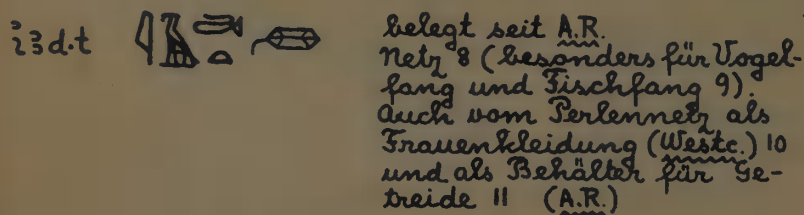 ỉꜣd.t
belegt seit A.R.
Netz 8 (besonders für Vogel-
fang und Fischfang 9).
Auch vom Perlennetz als
Frauenkleidung (Westc.) 10
und als Behälter für Ge-
treide 11 (A.R.)